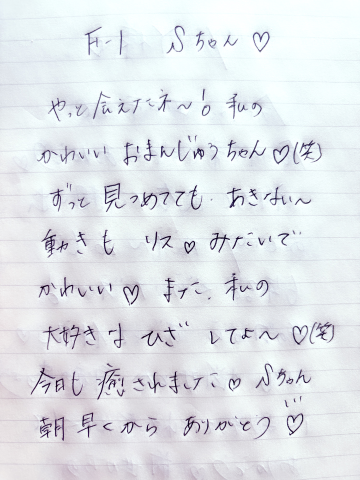 F-1 Sちゃん♡
やっと会えたネ〜! 私の
かわいい おまんじゅうちゃん♡(笑)
ずっと 見つめてても. あきない〜
動きも リス♡ みたいで
かわいい♡ また、私の
大好きな ひざ してよ〜♡(笑)
今日も 癒されました♡ Sちゃん
朝早くから ありがとう♡